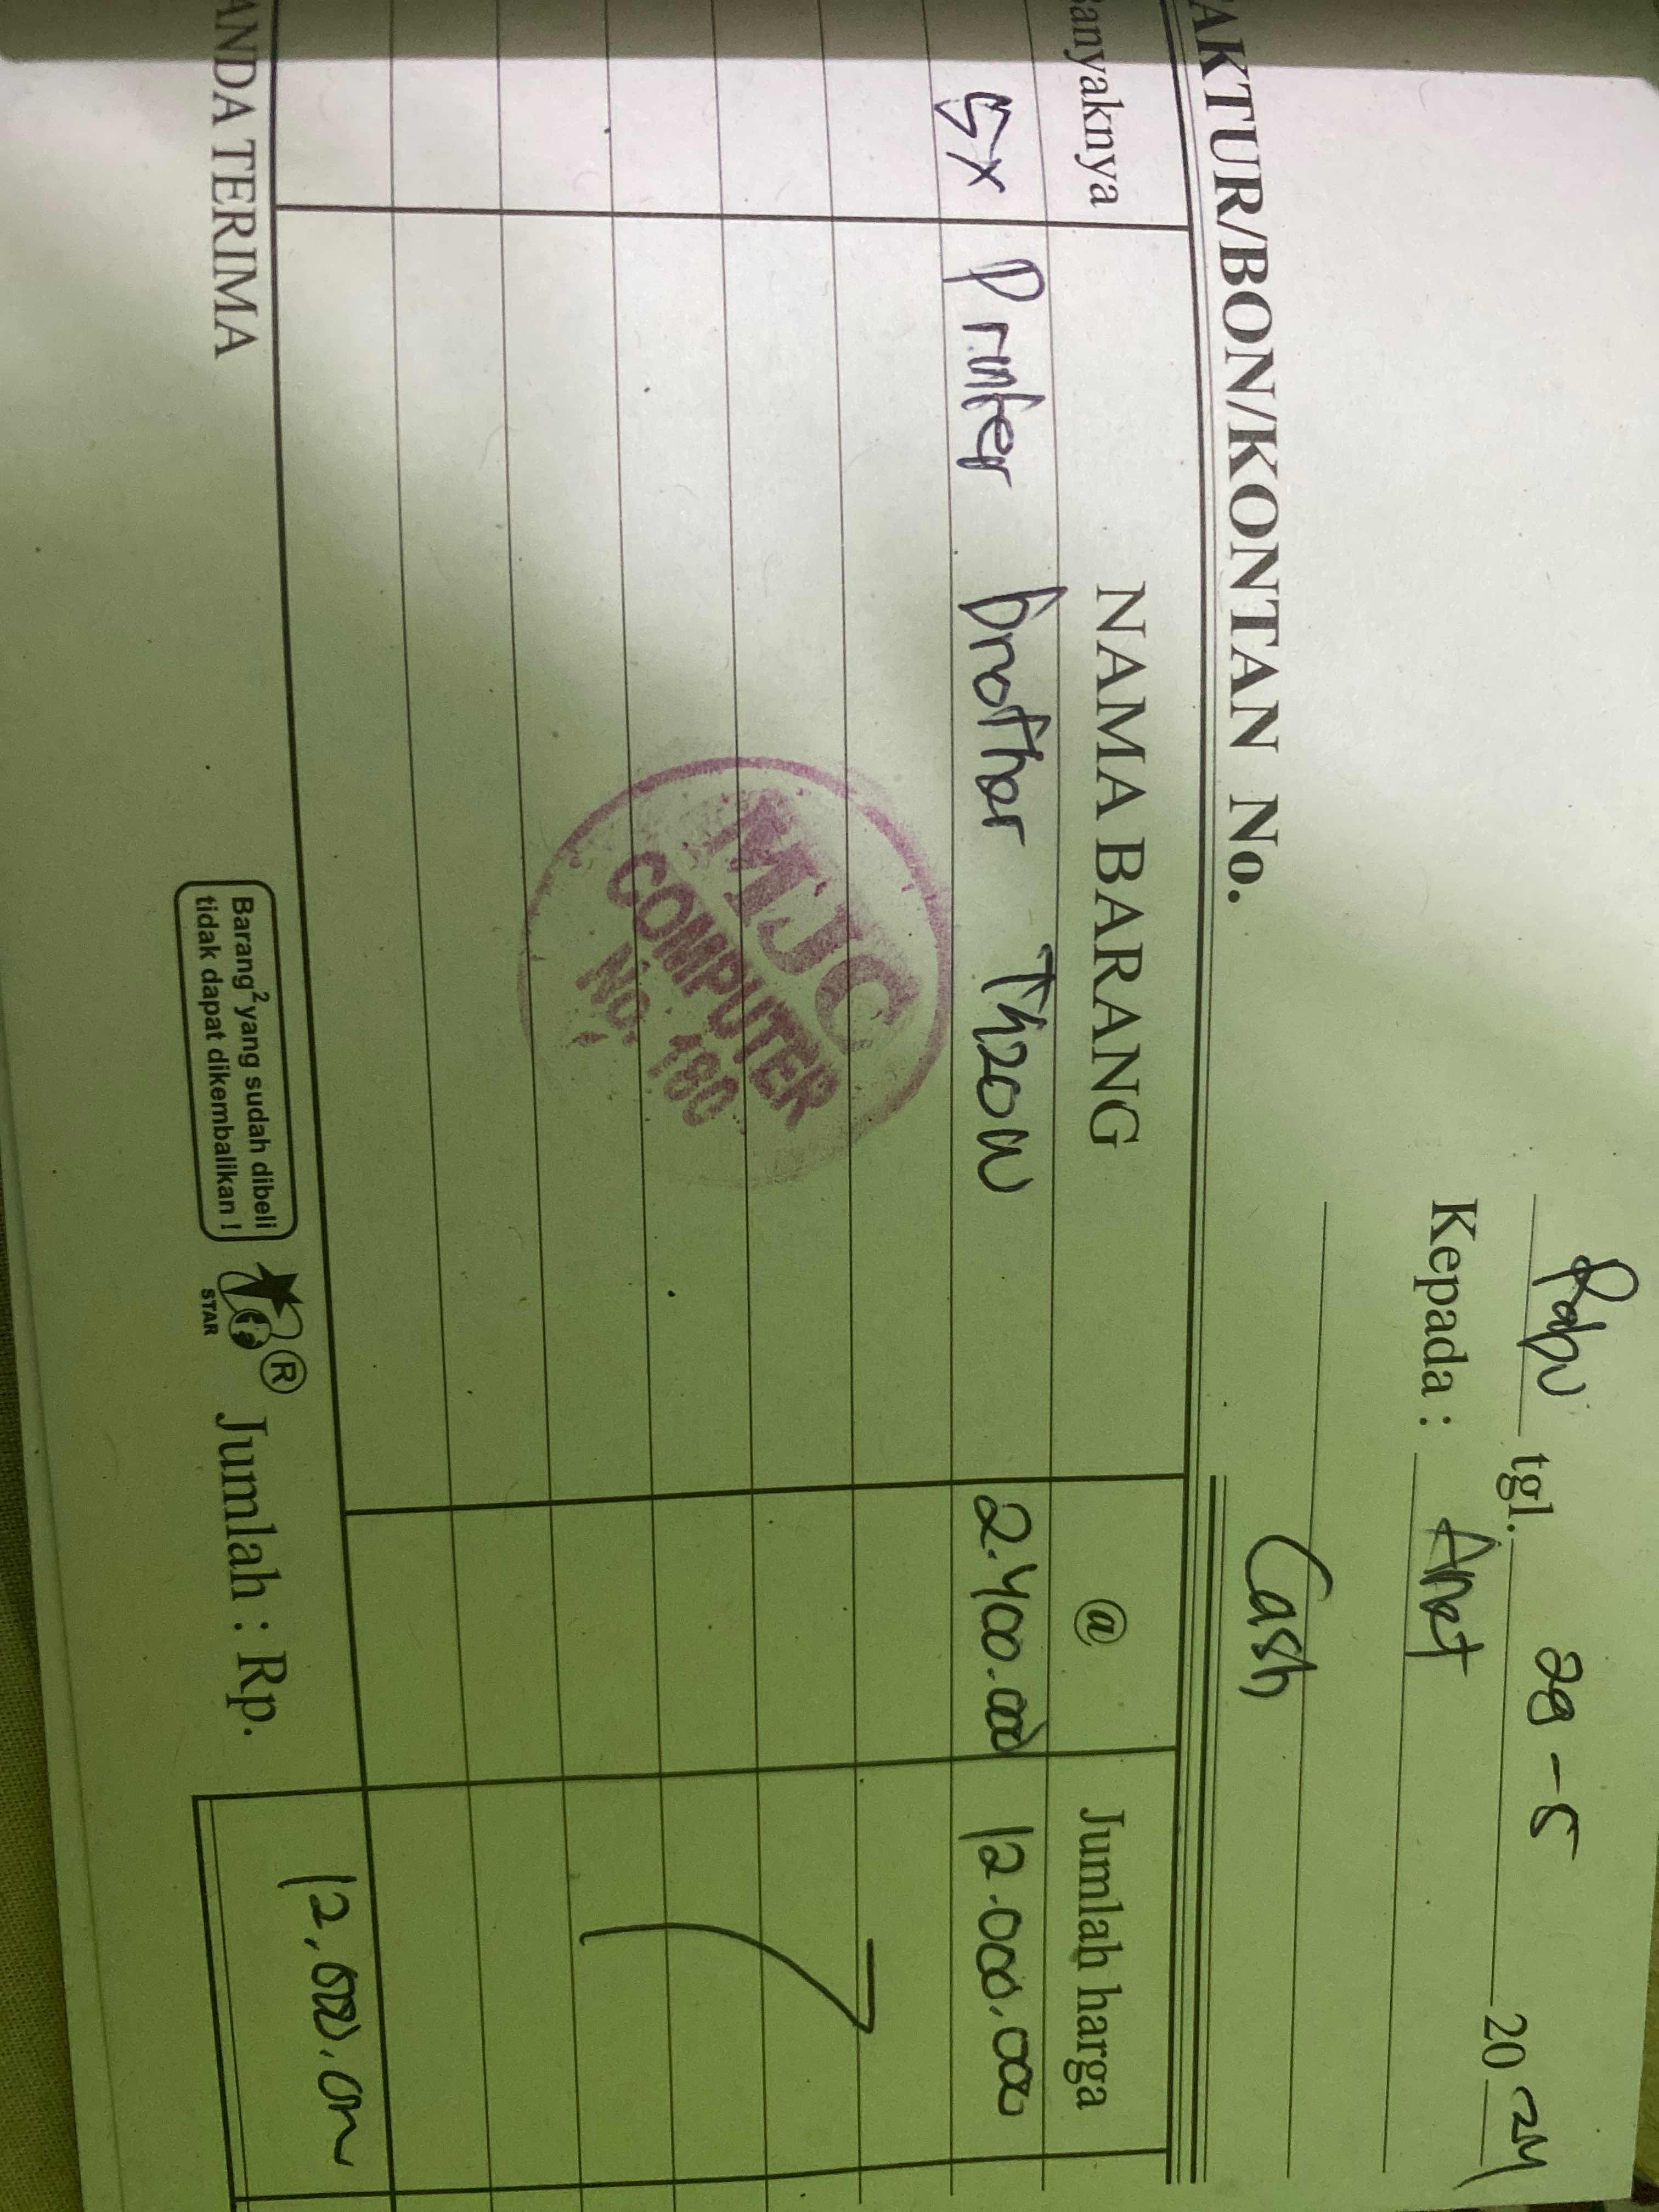 Rabu tgl. 28-5 2024
Kepada : Anet
Cash
AKTUR/BON/KONTAN No.
anyaknya NAMA BARANG @ Jumlah harga
5x Printer brother T420W 2.400.000 12.000.000
MJC
COMPUTER
No. 180
ANDA TERIMA
Barang²yang sudah dibeli
tidak dapat dikembalikan !
STAR
®
Jumlah : Rp. 12.000.000